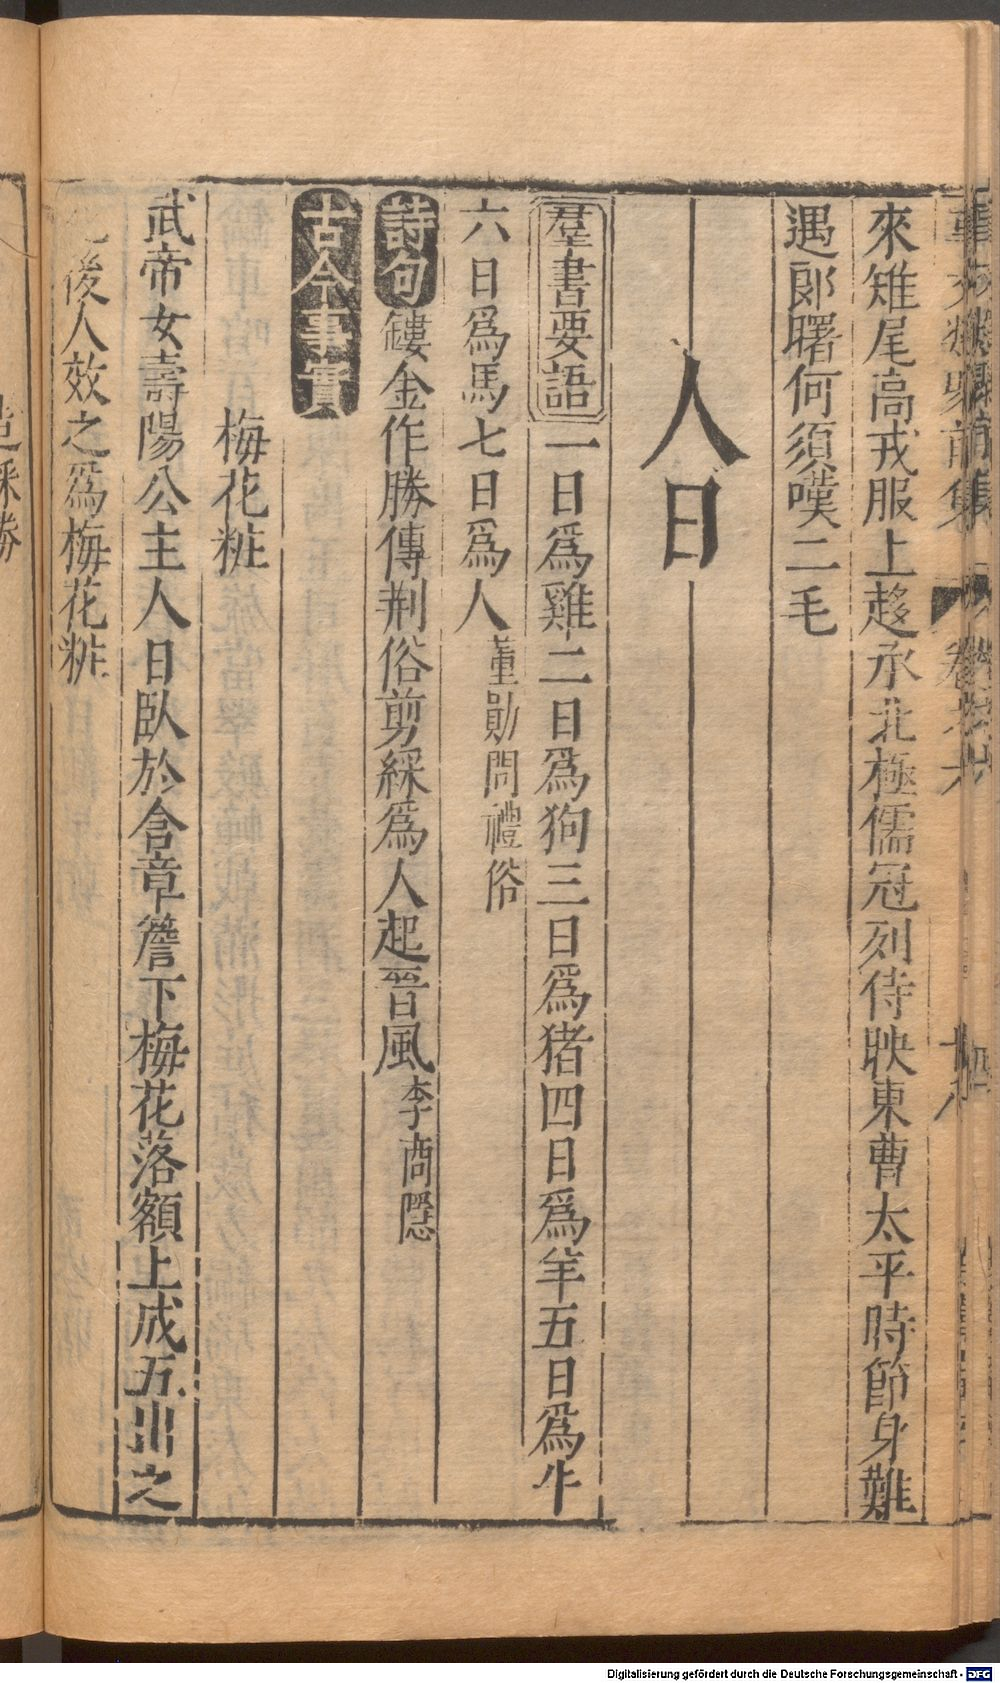 來雉尾高戎服上趍承北極儒冠列侍映東曹太平時節身難
遇郎曙何須嘆二毛
人日
羣書要語一日爲雞二日爲狗三日爲猪四日爲羊五日爲牛
六日爲馬七日爲人董勛問禮俗
詩句鏤金作勝傳荆俗剪綵爲人起晉風李商隱
古今事實
梅花粧
武帝女壽陽公主人日臥於含章簷下梅花落額上成五出之
後人效之爲梅花粧
綵勝
Digitalisierung gefördert durch die Deutsche Forschungsgemeinschaft - DFG